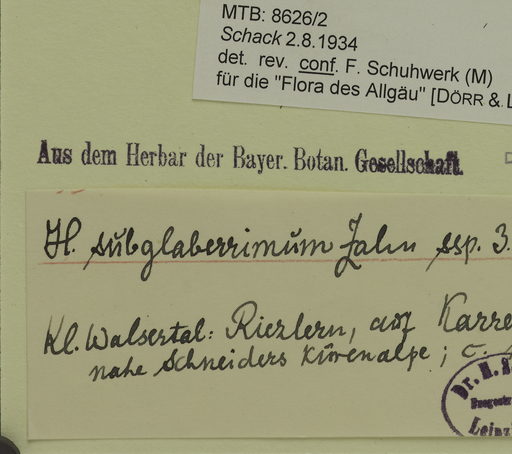 MTB: 8626/2
Schack 2.8.1934
det. rev. conf. F. Schuhwerk (M)
für die "Flora des Allgäu" [DÖRR & L
Aus dem Herbar der Bayer. Botan. Gesellschaft.
H. subglaberrimum Zahn ssp. 3.
Kl. Walsertal: Riezlern, auf Karre
nahe Schneiders Kürenalpe; c.
Dr. H.
Leipzi